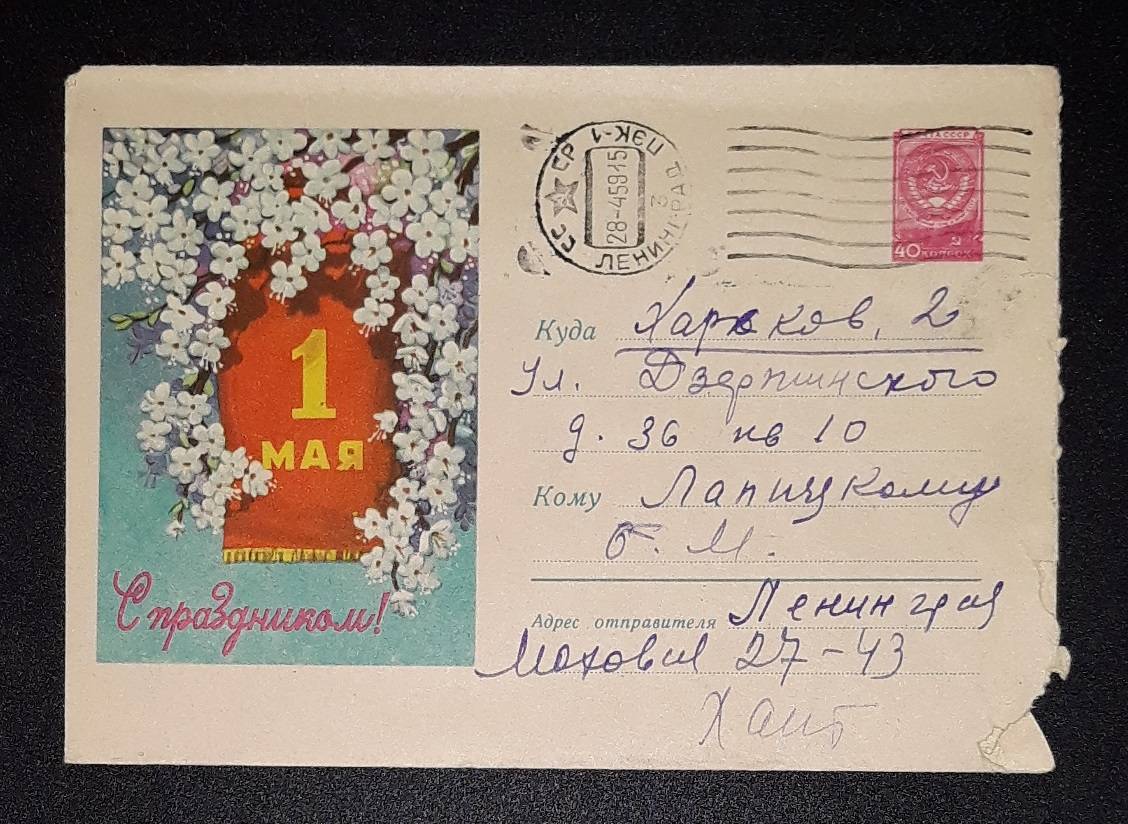 1
МАЯ
С праздником!
СССР
ПЖК-1
28-459-15
ЛЕНИНГРАД
ПОЧТА СССР
40 КОПЕЕК
Куда Харьков, 2
Ул. Дзержинского
д. 36 кв 10
Кому Лапицкому
Б. М.
Адрес отправителя Ленинград
Моховая 27-43
Хаит